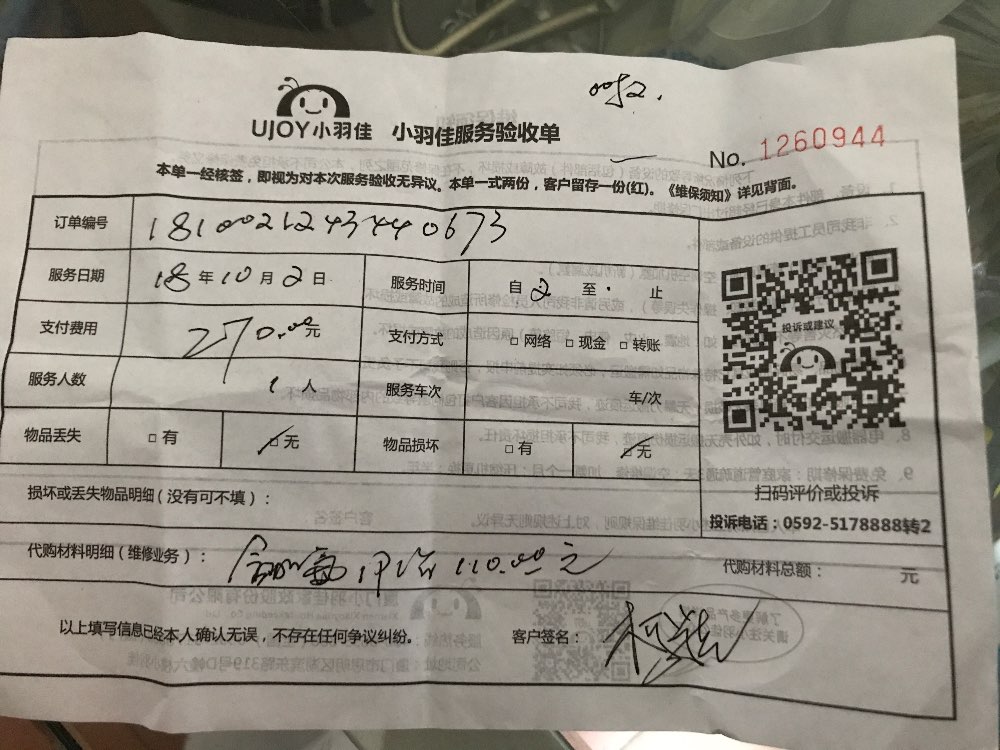 0052.
UJOY小羽佳 小羽佳服务验收单
No. 1260944
本单一经核签，即视为对本次服务验收无异议。本单一式两份，客户留存一份(红)。《维保须知》详见背面。
订单编号 181002124344 0673
服务日期 18 年 10 月 2 日 服务时间 自 2 至 · 止
支付费用 270.00元 支付方式 □ 网络 □ 现金 □ 转账
投诉或建议
服务人数 1 人 服务车次 车/次
物品丢失 □ 有 □ 无 物品损坏 □ 有 □ 无
扫码评价或投诉
损坏或丢失物品明细（没有可不填）：
投诉电话：0592-5178888转2
代购材料明细（维修业务）： 110.00元
代购材料总额： 元
以上填写信息已经本人确认无误，不存在任何争议纠纷。 客户签名：